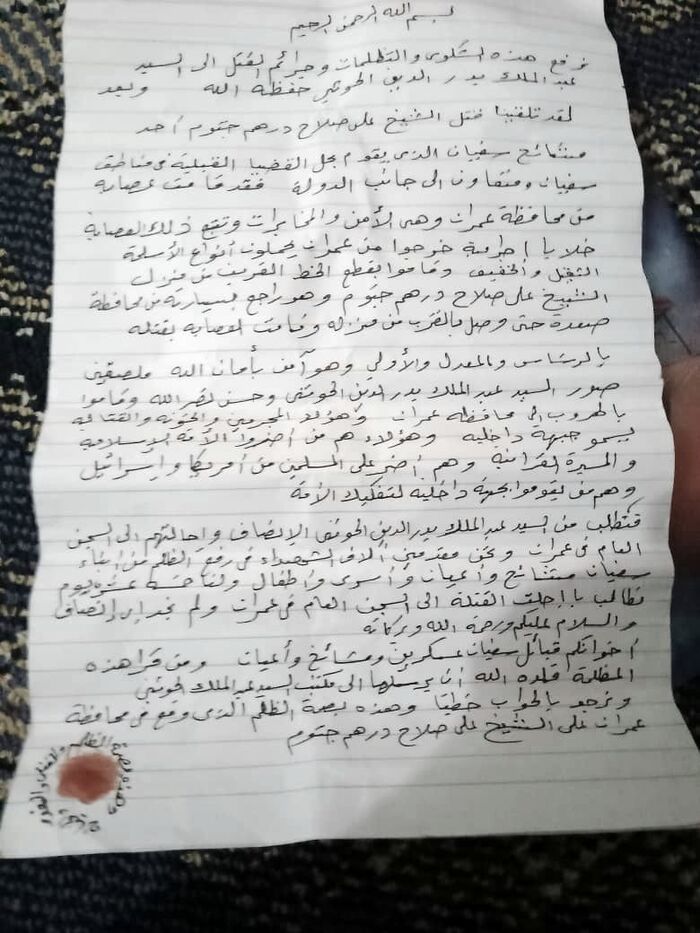 بسم الله الرحمن الرحيم
نرفع هذه الشكوى والتظلمات وجرائم القتل الى السيد
عبد الملك بدر الدين الحوثي حفظه الله وبعد
لقد تلقينا قتل الشيخ علي صلاح درهم حتوم أحد
مشائخ سفيان الذي يقوم بحل القضايا القبلية في مناطق
سفيان ومتعاون الى جانب الدولة فقد قامت عصابة
من محافظة عمران وهي الأمن والمخابرات وتتبع ذلك العصابة
خلايا اجرامية خرجوا من عمران يحملون أنواع الأسلحة
الثقيل والخفيف وقاموا بقطع الخط القريب من منزل
الشيخ علي صلاح درهم حتوم وهو راجع بسيارته من محافظة
صعدة حتى وصل بالقرب من منزله وقامت العصابة بقتله
بالرشاس والمعدل والأولي وهو آمن بأمان الله ملصقين
صور السيد عبد الملك بدر الدين الحوثي وحسن نصر الله وقاموا
بالهروب إلى محافظة عمران وهؤلاء المجرمين والخونه والقتاله
يسمو جبهة داخلية وهؤلاء هم من أضروا الأمة الإسلامية
والمسيرة القرآنية وهم أضر على المسلمين من أمريكا وإسرائيل
وهم من يقوموا بجبهة داخلية لتفكيك الأمة
فنطلب من السيد عبد الملك بدر الدين الحوثي الإنصاف وإحالتهم الى السجن
العام في عمران ونحن مقدمين آلاف الشهداء في رفع الظلم من أبناء
سفيان مشائخ وأعيان وأسرى وأطفال ولنا خمسة عشر يوم
نطالب باإحلت القتلة الى السجن العام في عمران ولم نجد إي إنصاف
والسلام عليكم ورحمة الله وبركاته
أخوانكم قبائل سفيان عسكريين ومشائخ وأعيان ومن قرأ هذه
المظلمة فلده الله أن يرسلها الى مكتب السيد عبد الملك الحوثي
ونرجو بالجواب خطيا وهذه بصمة الظلم الذي وقع في محافظة
عمران على الشيخ علي صلاح درهم حتوم
وهذه بصمة الظلم